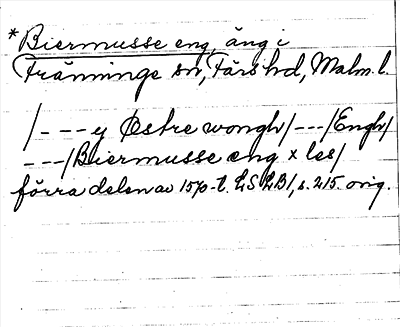 *Biermusse eng, äng i
Tränninge sn, Färs hd, Malm. l.
/---y Østre wongh/---/Engh/
---/Biermusse eng x les/
förra delen av 1570-t. LSLB1, s. 215. orig.